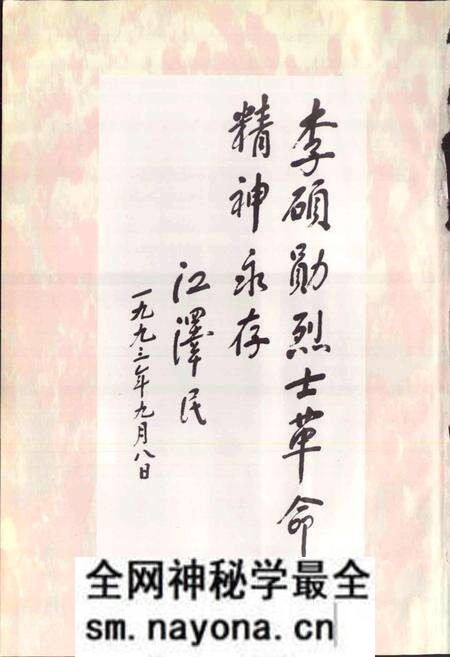 李硕勋烈士革命
精神永存
江澤民
一九九三年九月八日
全网神秘学最全
sm.nayona.cn